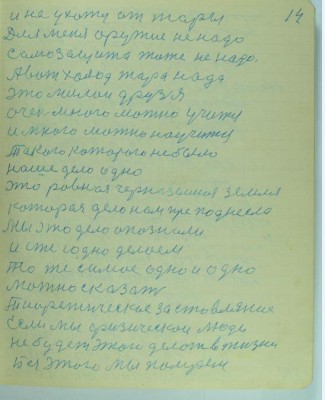 14
и не ухожу от жары
Для меня оружие не надо
самозащита тоже не надо.
А вот холод жара надо
это милои друзя
очен много можно учится
и много можно научится
такого которого небыло
наше дело одно
это ровная черноземная земля
которая дело нам преподнесла
Мы это дело опознали
и сегодно делаем
то же самое одно и одно
можно сказать
Теоретическое заставляние
Если мы физической люди
не будем этого делат в жизни
без этого мы помрем